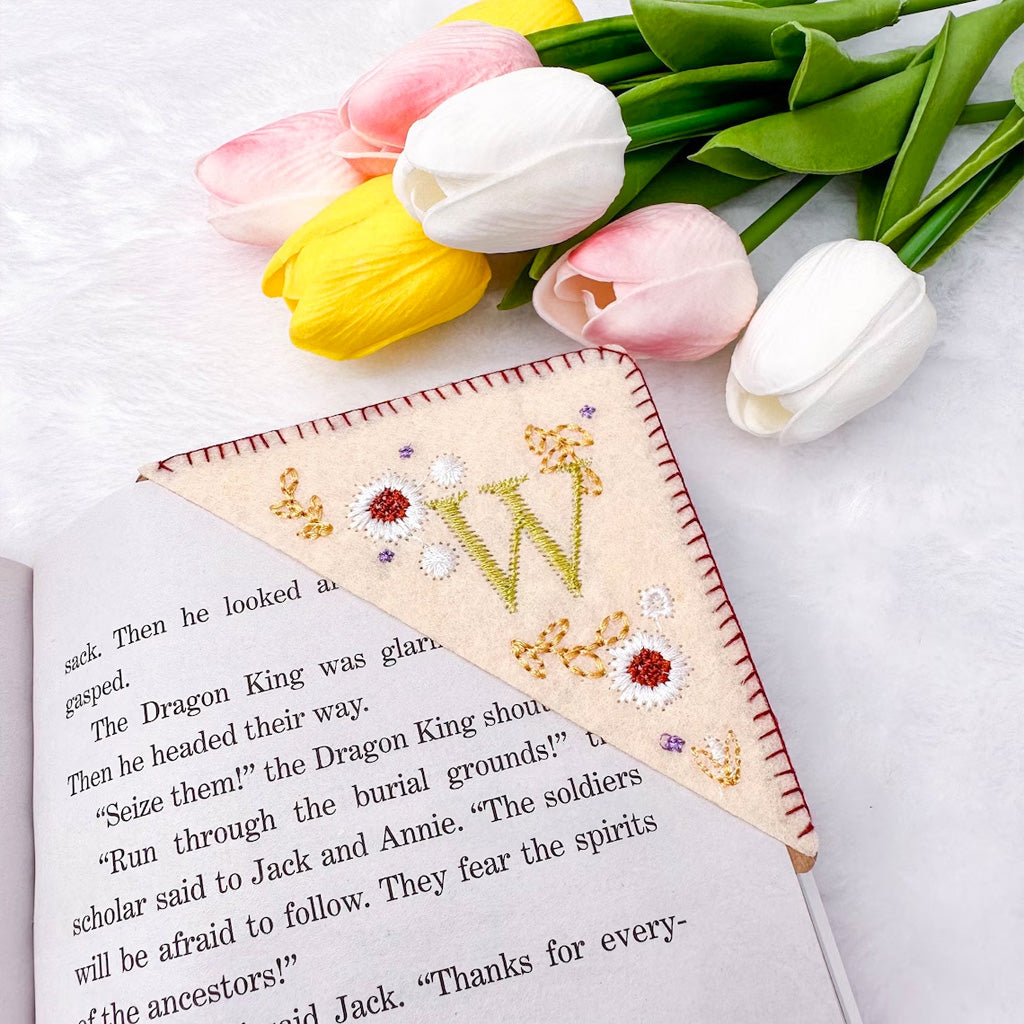 W
sack. Then he looked
gasped.
The Dragon King was
Then he headed their way.
“Seize them!” the Dragon King
“Run through the burial grounds!”
scholar said to Jack and Annie. “The soldiers
will be afraid to follow. They fear the spirits
of the ancestors!”
said Jack. “Thanks for every-